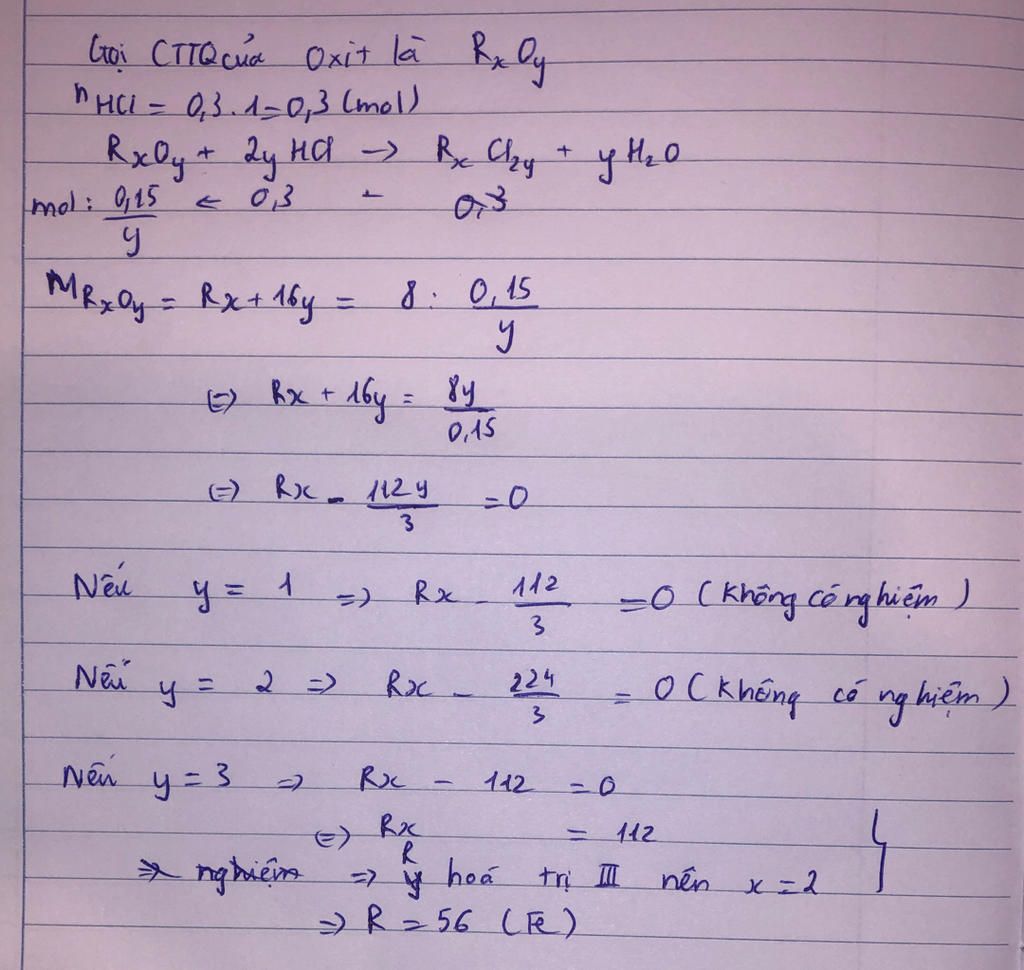 Gọi CTTQ của Oxit là RxOy
nHCl = 0,3.1=0,3 (mol)
RxOy + 2y HCl → RxCl2y + yH2O
mol: 0,15/y ← 0,3 - 0,3
MRxOy = Rx + 16y = 8 : 0,15/y
(=) Rx + 16y = 8y/0,15
(=) Rx - 112y/3 = 0
Nếu y = 1 => Rx - 112/3 = 0 (Không có nghiệm)
Nếu y = 2 => Rx - 224/3 = 0 (Không có nghiệm)
Nếu y = 3 => Rx - 112 = 0
(=) Rx = 112
=> nghiệm => R hoá trị III nên x = 2
=> R = 56 (Fe)